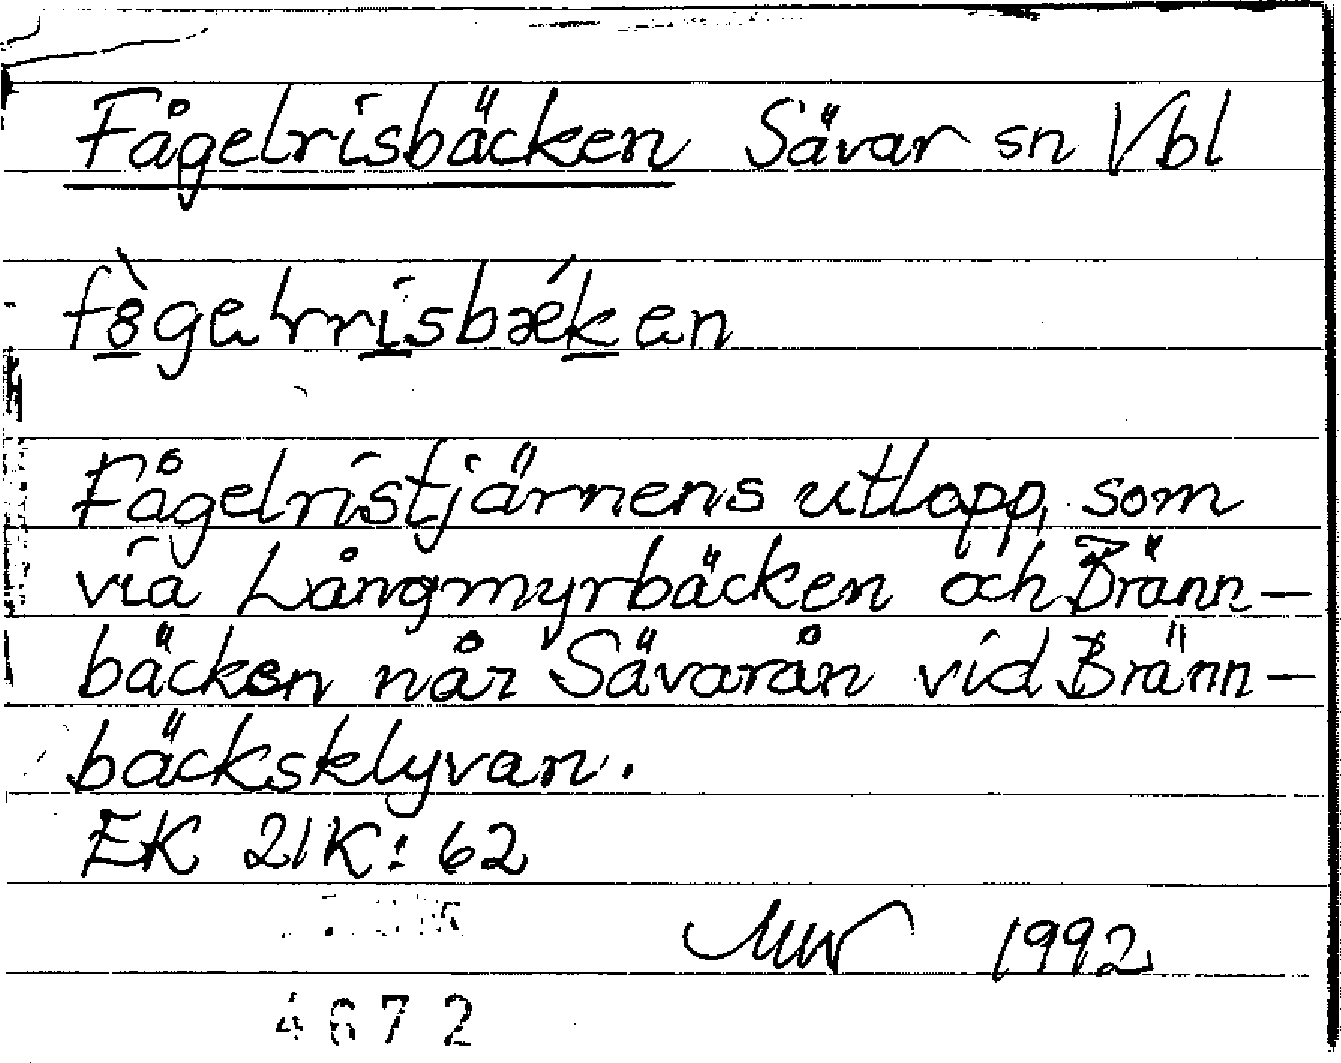 Fågelrisbäcken Sävar sn Vbl
Fågelristjärnens utlopp, som
via Långmyrbäcken och Bränn-
bäcken når Sävarån vid Bränn-
bäcksklyvan.
EK 21K: 62
1992
4672